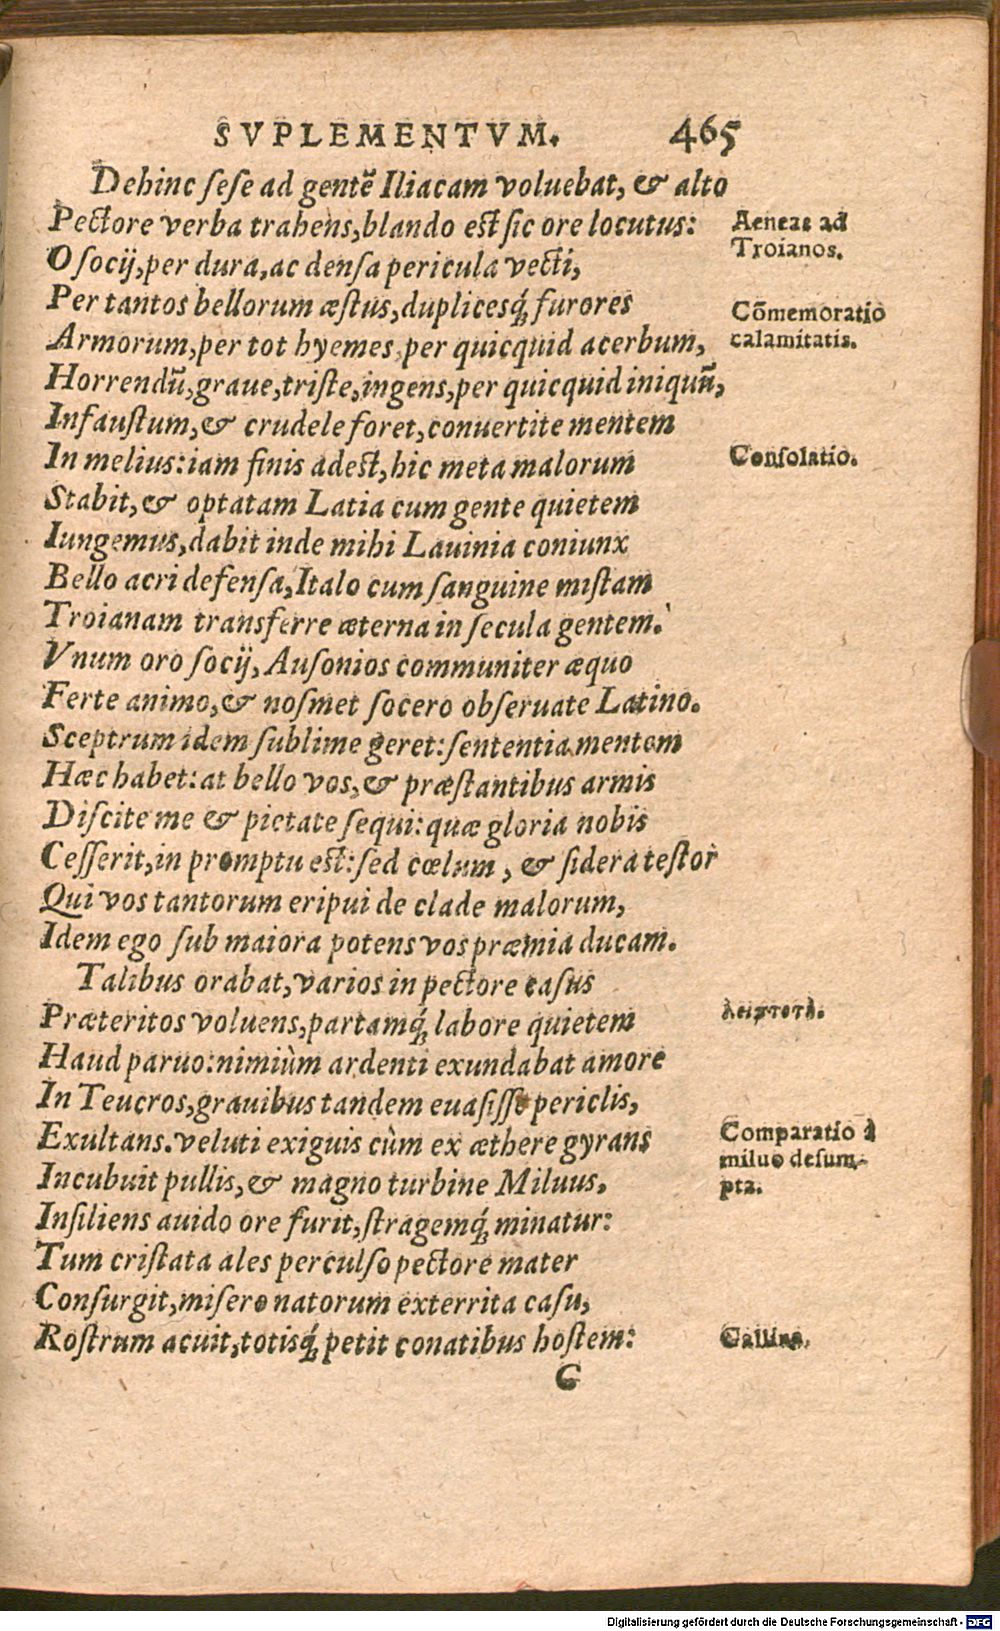 SVPLEMENTVM. 465
Dehinc ſeſe ad gentē Iliacam voluebat, & alto
Pectore verba trahens, blando eſt ſic ore locutus:
Aeneas ad
Troianos.
O ſocij, per dura, ac denſa pericula vecti,
Per tantos bellorum æſtus, duplicesq́; furores
Cōmemoratio
calamitatis.
Armorum, per tot hyemes, per quicquid acerbum,
Horrendū, graue, triſte, ingens, per quicquid iniquū,
Infauſtum, & crudele foret, conuertite mentem
In melius: iam finis adeſt, hic meta malorum
Conſolatio.
Stabit, & optatam Latia cum gente quietem
Iungemus, dabit inde mihi Lauinia coniunx
Bello acri defenſa, Italo cum ſanguine miſtam
Troianam transferre æterna in ſecula gentem.
Vnum oro ſocij, Auſonios communiter æquo
Ferte animo, & noſmet ſocero obſeruate Latino.
Sceptrum idem ſublime geret: ſententia mentem
Hæc habet: at bello vos, & præſtantibus armis
Diſcite me & pietate ſequi: quæ gloria nobis
Ceſſerit, in promptu eſt: ſed cœlum, & ſidera teſtor
Qui vos tantorum eripui de clade malorum,
Idem ego ſub maiora potens vos præmia ducam.
Talibus orabat, varios in pectore caſus
Præteritos voluens, partamq́; labore quietem
Haud paruo: nimiùm ardenti exundabat amore
In Teucros, grauibus tandem euaſiſſe periclis,
Exultans. veluti exiguis cùm ex æthere gyrans
Comparatio à
miluo deſum-
pta.
Incubuit pullis, & magno turbine Miluus,
Inſiliens auido ore furit, ſtragemq́; minatur:
Tum criſtata ales perculſo pectore mater
Conſurgit, miſero natorum exterrita caſu,
Roſtrum acuit, totisq́; petit conatibus hoſtem:
Gallina.
G
Digitalisierung gefördert durch die Deutsche Forschungsgemeinschaft - DFG